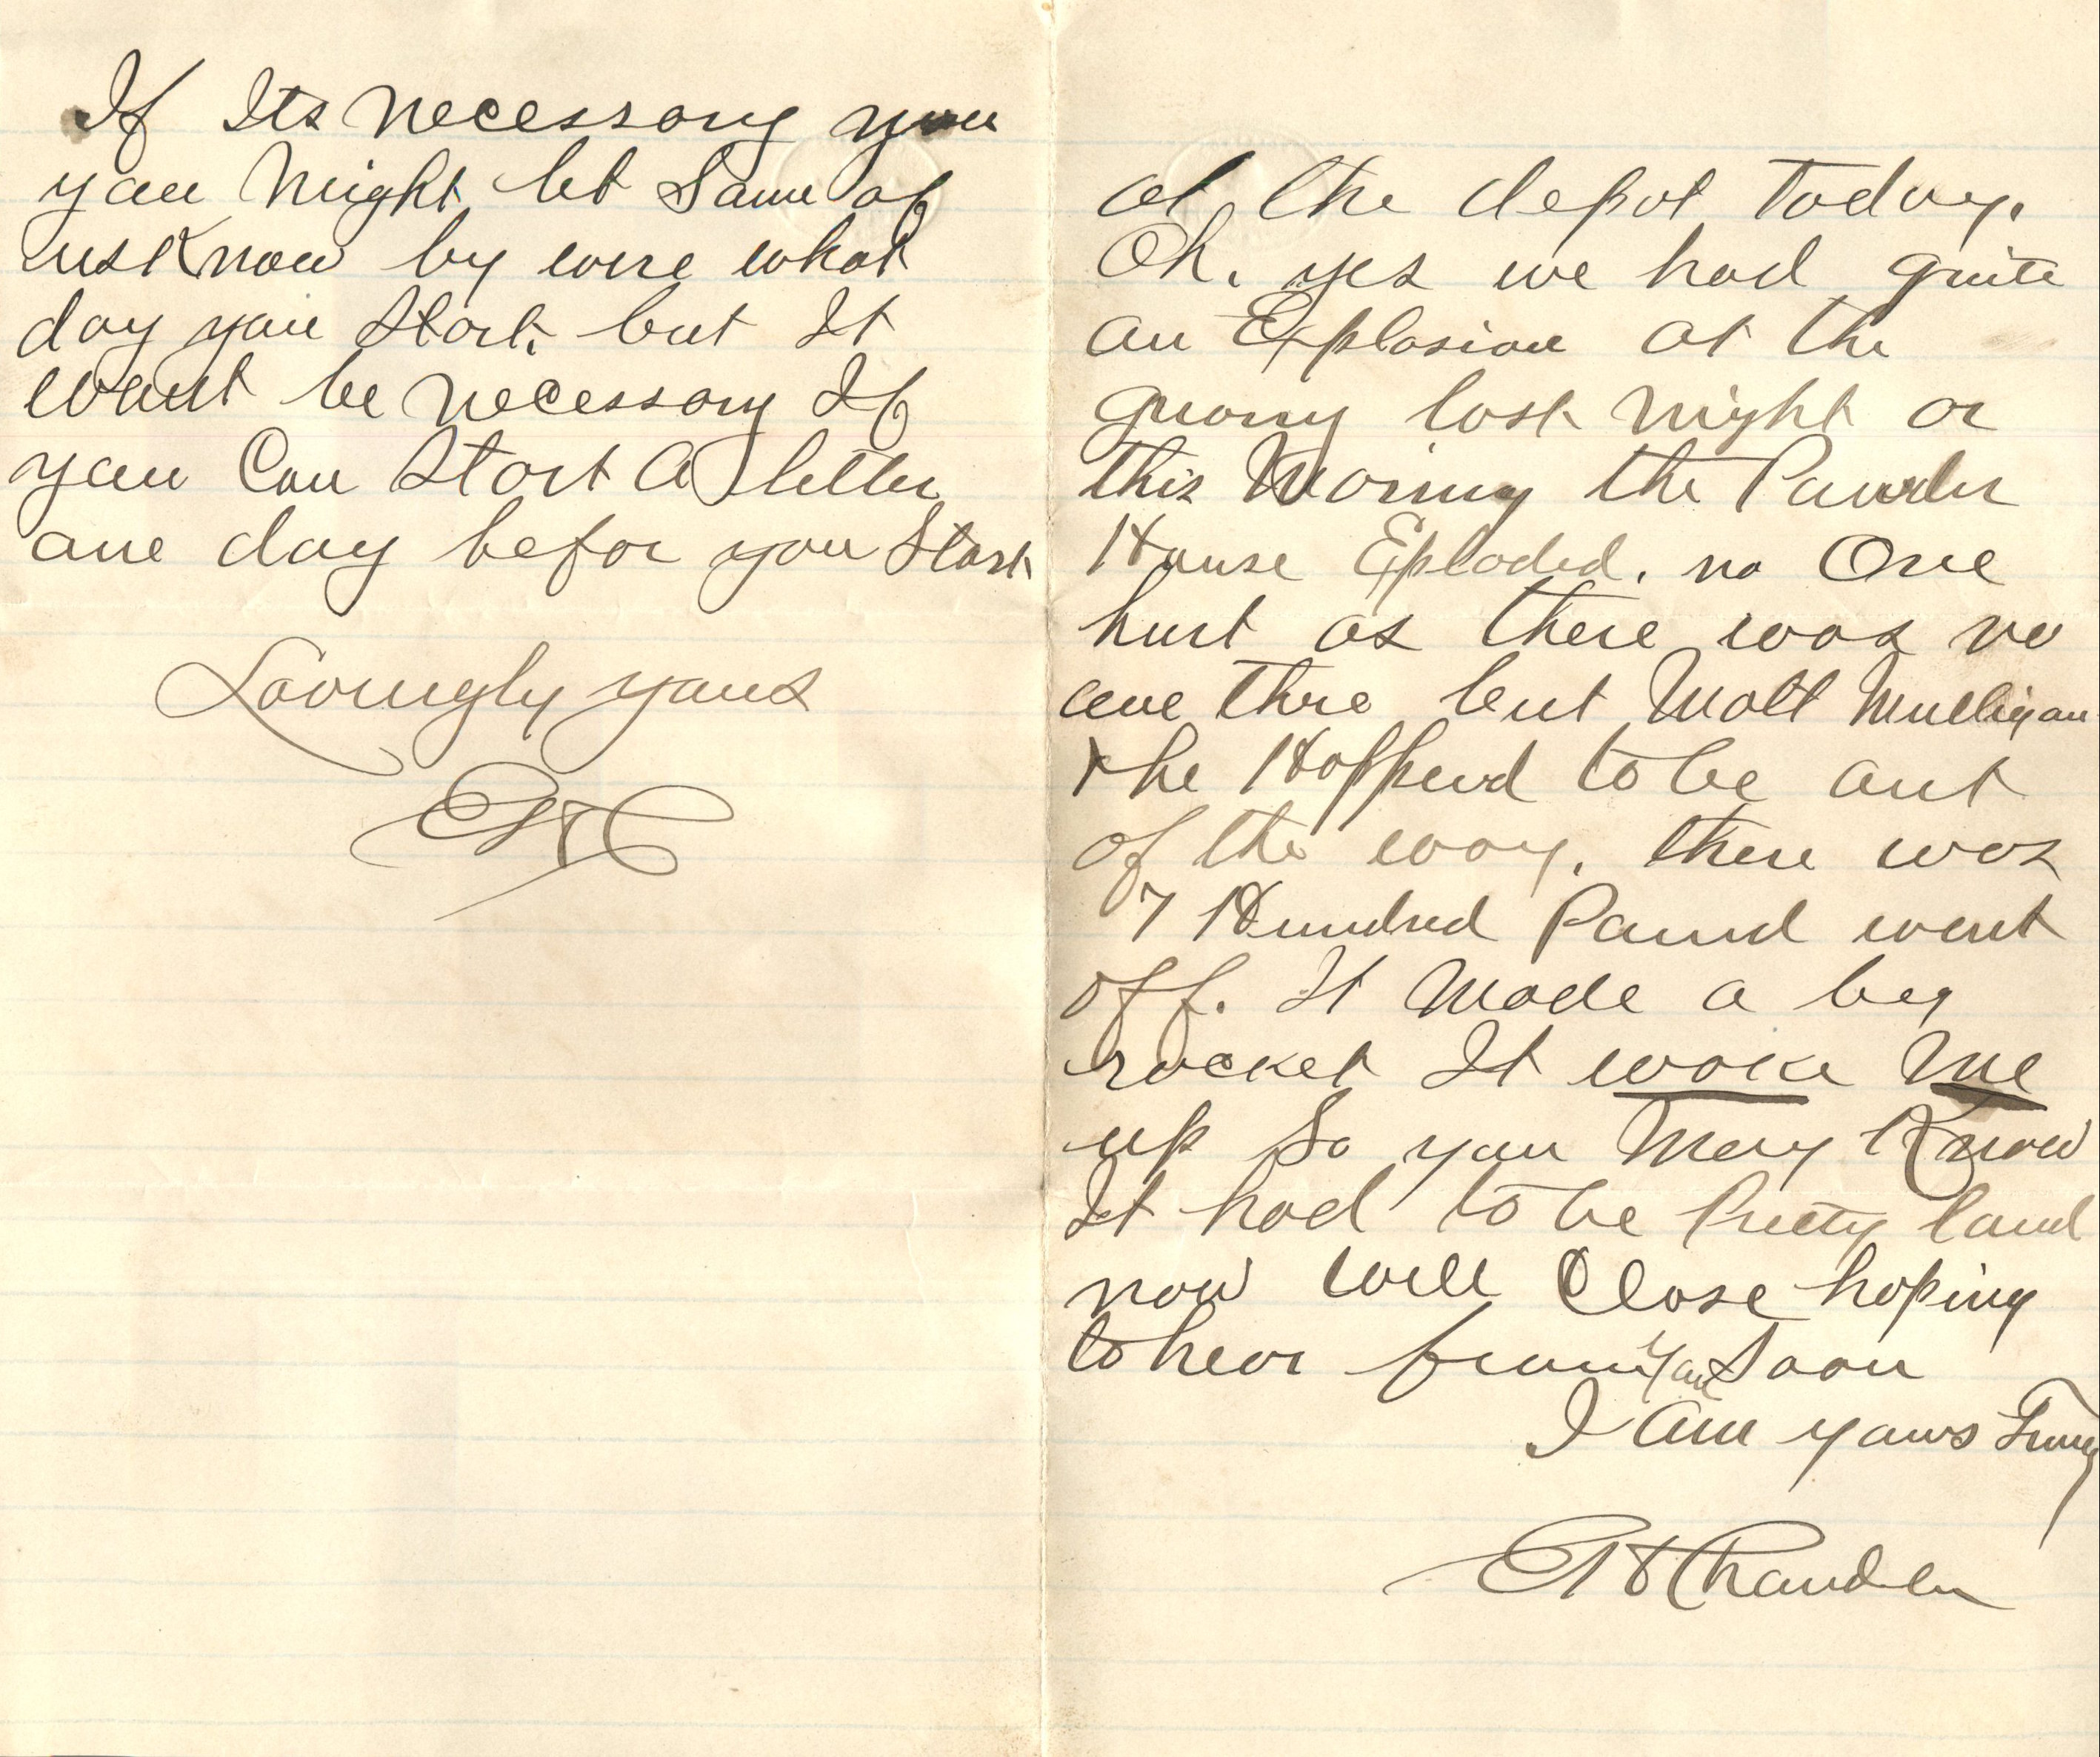 If Its necessary you
you might let Some of
us Know by wire what
day you Start. but It
wont be necessary If
you Can Start a letter
one day befor you Start
Lovingly yours
at the depot today.
Oh. yes we had quite
an Explosion at the
quarry last night or
this Morning the Powder
House Eploded. no One
hurt as there was no
one thre but Matt Mulligan
& he Happend to be out
of the way. there was
7 Hundred Pound went
off. It Made a big
rocket It woke Me
up So you May Know
It had to be Pretty loud
now will Close hoping
to hear from you Soon
I am yours Truly